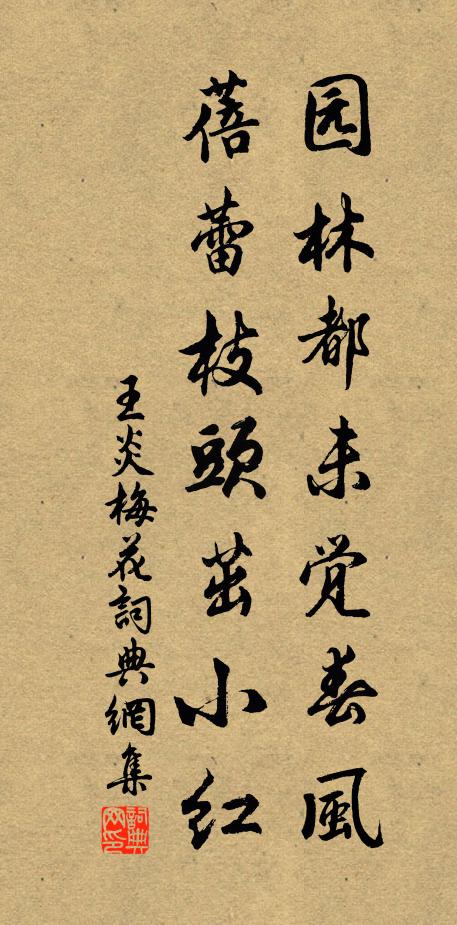 园林都未觉春風
蓓蕾枝頭茁小红
王炎梅花詞典網集
詞典网印